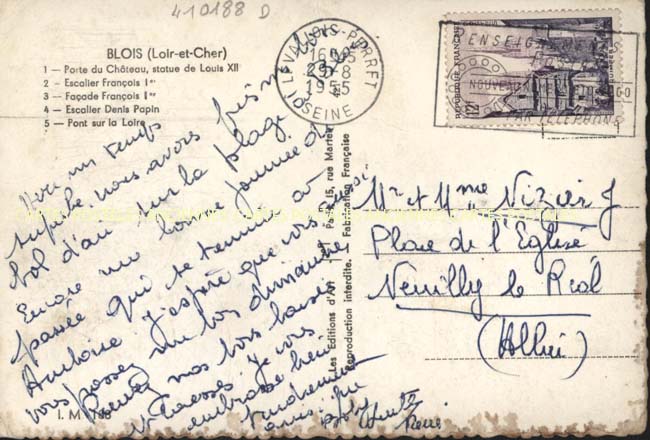 410188 D
BLOIS (Loir-et-Cher)
1 – Porte du Château, statue de Louis XII
2 – Escalier François Ier
3 – Façade François Ier
4 – Escalier Denis Papin
5 – Pont sur la Loire
LEVALLOIS-PERRET
SEINE
POSTES
REPUBLIQUE FRANÇAISE
12F
NOUVEAUX
PAR TELEPHONE
Avec un temps
superbe nous avons pris un bon
bol d'air sur la plage
Encore une bonne journée de
passée qui se termine à
Amboise j'espère que vous aussi
vous passez un bon dimanche
Recevez nos bons baisers
et caresses je vous
embrasse bien
tendrement
Les Editions d'Art
Paris 15, rue Martel
Reproduction interdite. Fabrication Française
Mr et Mme Nizier J
Place de l'Eglise
Neuilly le Réal
(Allier)
I. M.